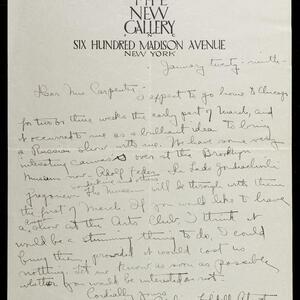 THE
NEW
GALLERY
INC
SIX HUNDRED MADISON AVENUE
NEW YORK
January twenty-ninth-
Dear Mrs Carpenter: I expect to go home to Chicago
for two or three weeks the early part of March, and
it occurred to me as a brilliant idea to bring
a Russian show with me. We have some very
interesting canvases over at the Brooklyn
Museum now - Adolf Feder, La Lado Goudiachvili
Gregorieff. The Museum will be through with them
the first of March. If you would like to have
a show at the Arts Club I think it
would be a stunning thing to do. I could
bring them, provided it would cost us
nothing. Let me know as soon as possible
whether you would be interested or not -
Cordially yours